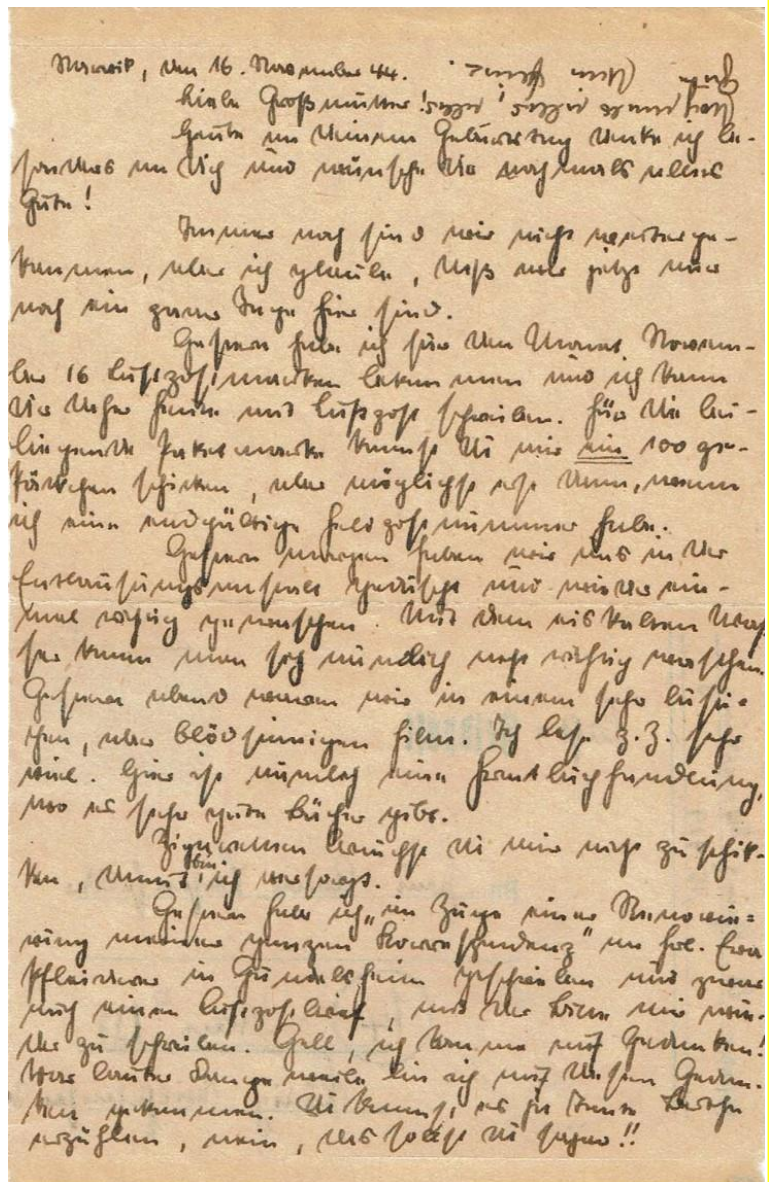 Narvik, den 16. November 44.
Liebe Großmutter!
Heute an Deinem Geburtstag denke ich be-
sonders an Dich und wünsche Dir nochmals alles
Gute!
Immer noch sind wir nicht weiterge-
kommen, aber ich glaube, daß wir jetzt nur
noch ein paar Tage hier sind.
Gestern habe ich für den Monat Novem-
ber 16 Luftpostmarken bekommen und ich kann
Dir daher heute mit Luftpost schreiben. Für die bei-
liegende Paketmarke kannst Du mir ein 100 gr-
Päckchen schicken, aber möglichst erst dann, wenn
ich eine endgültige Feldpostnummer habe.
Gestern morgen haben wir uns in der
Entlausungsanstalt geduscht und wieder ein-
mal richtig gewaschen. Mit dem eiskalten Was-
ser kann man sich nämlich nicht richtig waschen.
Gestern abend waren wir in einem sehr lusti-
gen, aber blödsinnigen Film. Ich lese z. Z. sehr
viel. Hier ist nämlich eine Frontbuchhandlung,
wo es sehr gute Bücher gibt.
Zigaretten brauchst Du mir nicht zu schik-
ken, damit bin ich versorgt.
Gestern habe ich „im Zuge einer
meiner ganzen Korrespondenz" an Frl.
Pfleiderer in Gundelsheim geschrieben und zwar
auch einen Luftpostbrief, mit der Bitte mir wie-
der zu schreiben. Gell, ich komme auf Gedanken!
Vor lauter Langeweile bin ich auf diesen Gedan-
ken gekommen. Du kannst es ja Tante
erzählen, nein, das sollst Du sogar!!